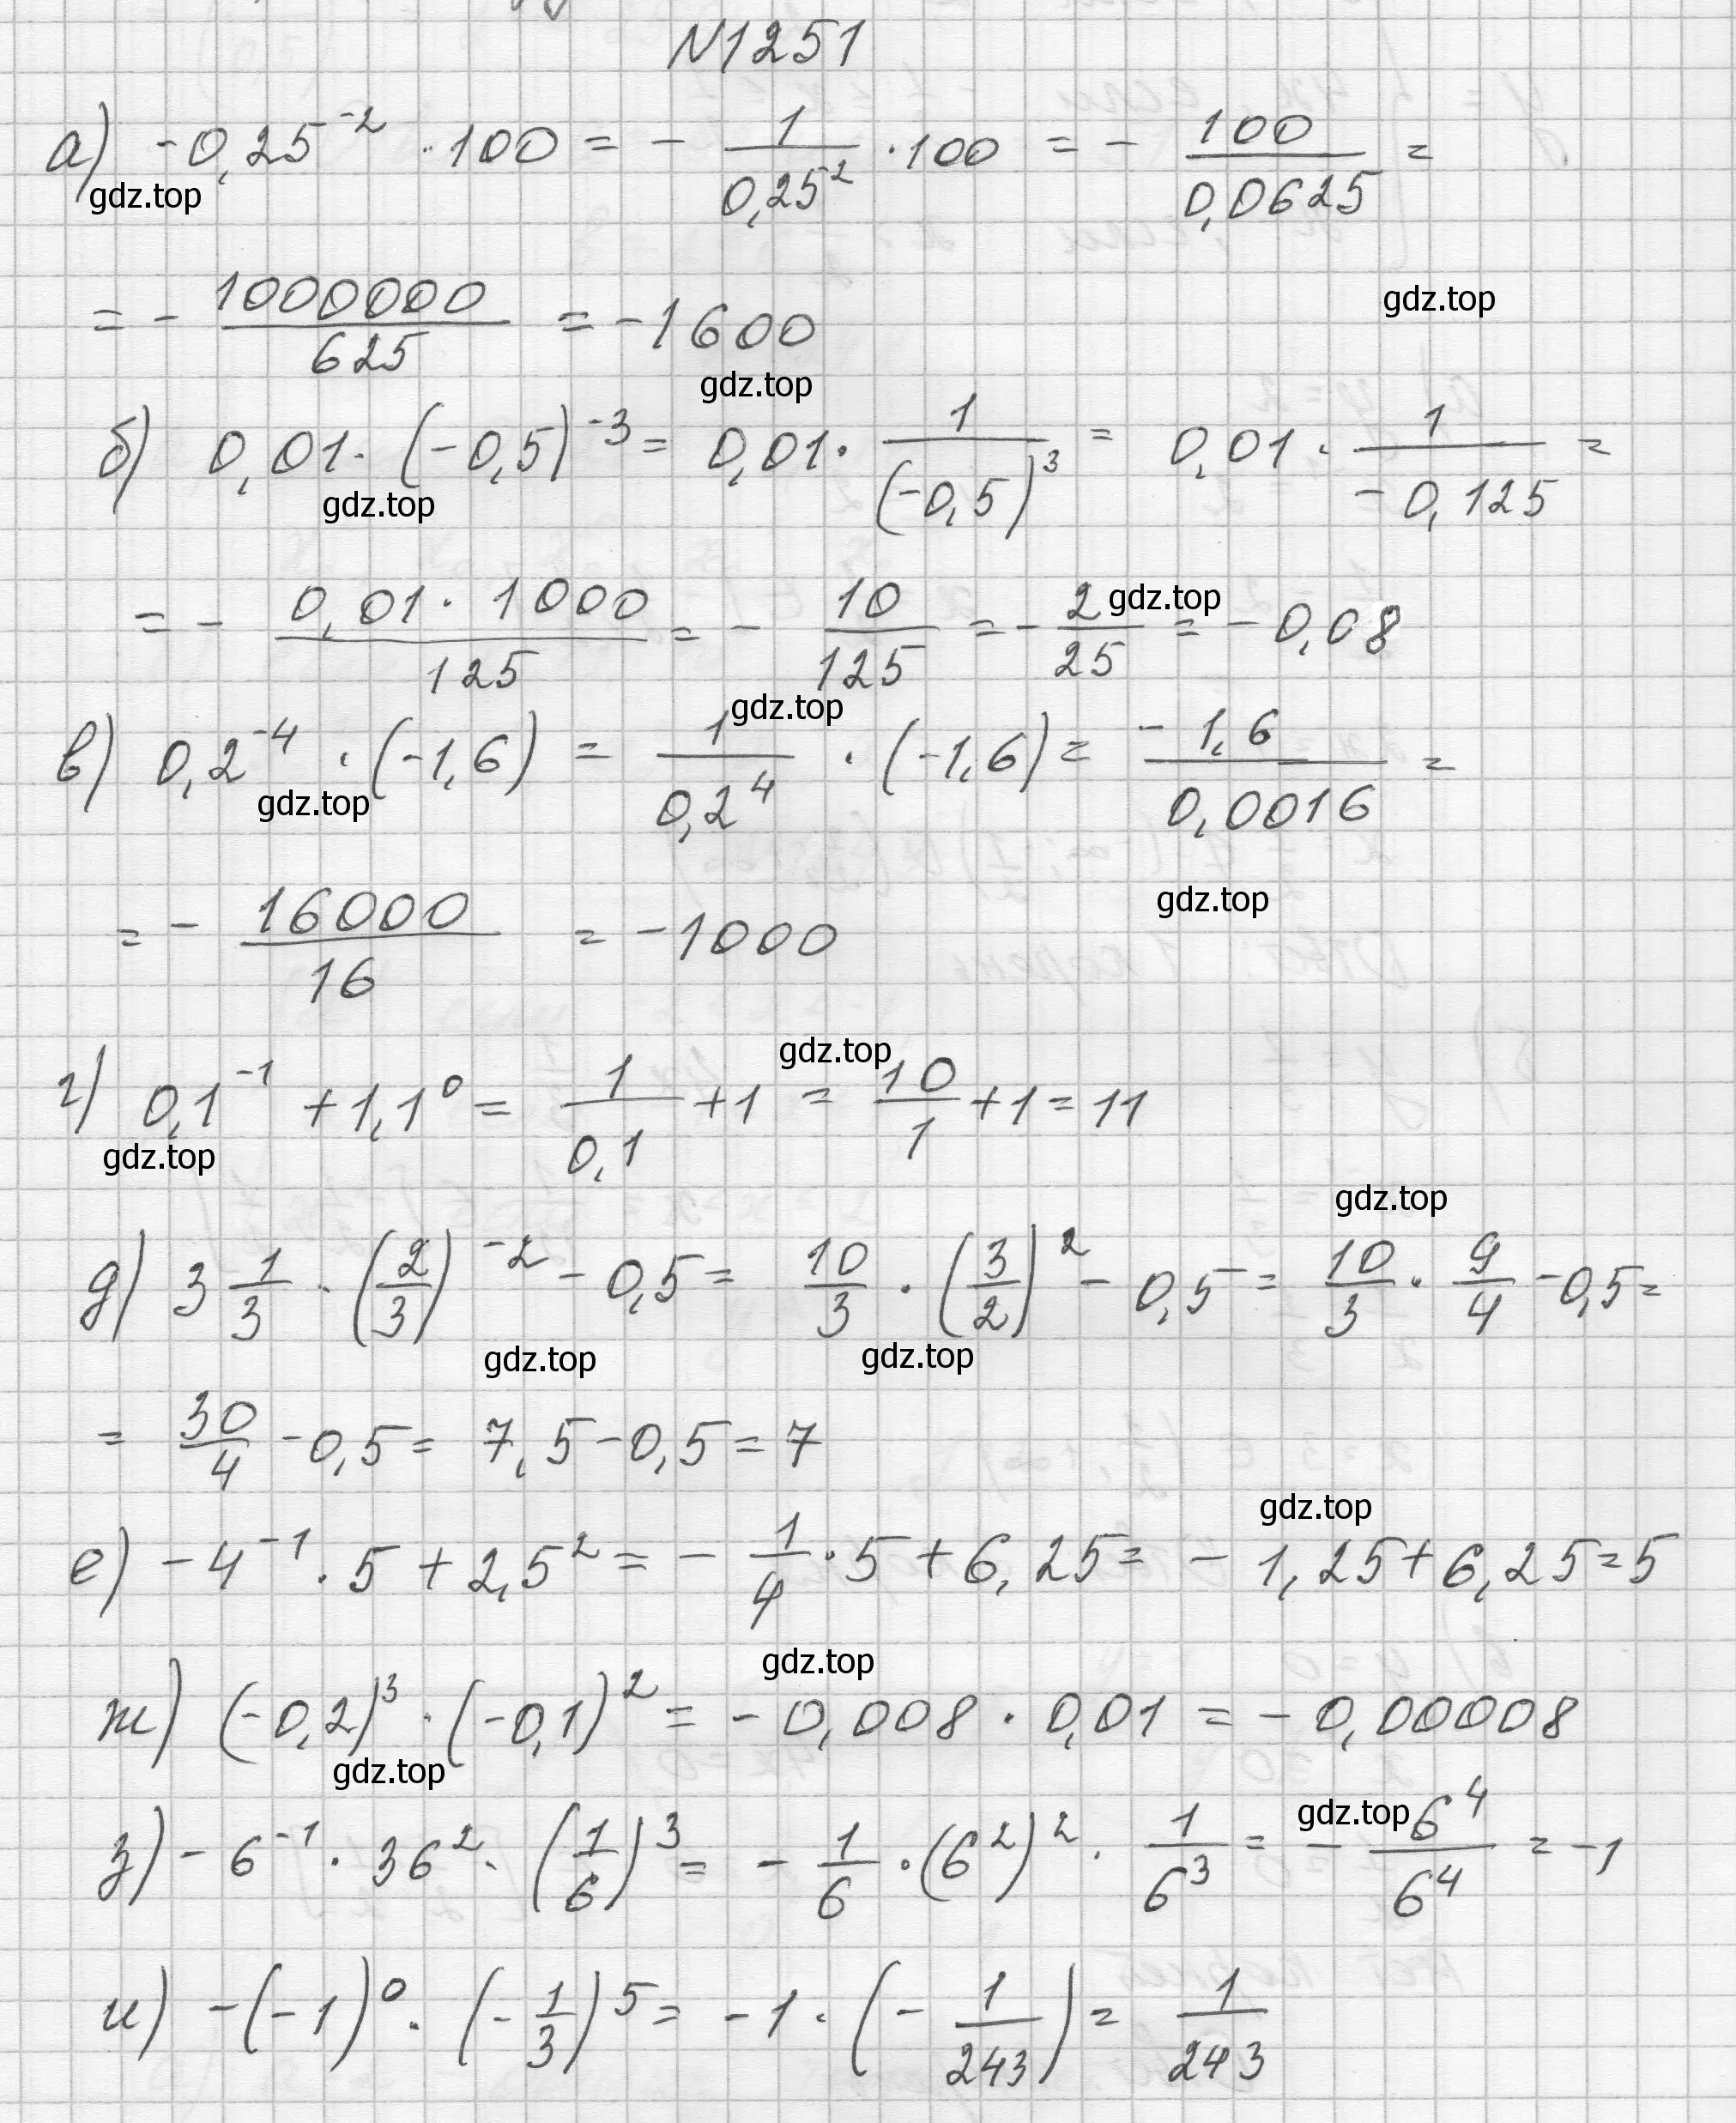 N1251
а) -0,25^{-2} · 100 = - \frac{1}{0,25^2} · 100 = - \frac{100}{0,0625} =
gdz.top
= - \frac{1000000}{625} = -1600 gdz.top
gdz.top
б) 0,01 · (-0,5)^{-3} = 0,01 · \frac{1}{(-0,5)^3} = 0,01 · \frac{1}{-0,125} =
gdz.top
= - \frac{0,01 · 1000}{125} = - \frac{10}{125} = - \frac{2}{25} = -0,08 gdz.top
gdz.top
в) 0,2^{-4} · (-1,6) = \frac{1}{0,2^4} · (-1,6) = \frac{-1,6}{0,0016} =
gdz.top
= - \frac{16000}{16} = -1000 gdz.top
gdz.top
г) 0,1^{-1} + 1,1^0 = \frac{1}{0,1} + 1 = \frac{10}{1} + 1 = 11
gdz.top
gdz.top
д) 3\frac{1}{3} · (\frac{2}{3})^{-2} - 0,5 = \frac{10}{3} · (\frac{3}{2})^2 - 0,5 = \frac{10}{3} · \frac{9}{4} - 0,5 =
gdz.top gdz.top
= \frac{30}{4} - 0,5 = 7,5 - 0,5 = 7
gdz.top
е) -4^{-1} · 5 + 2,5^2 = - \frac{1}{4} · 5 + 6,25 = -1,25 + 6,25 = 5
gdz.top
ж) (-0,2)^3 · (-0,1)^2 = -0,008 · 0,01 = -0,00008
gdz.top
gdz.top
з) -6^{-1} · 36^2 · (\frac{1}{6})^3 = - \frac{1}{6} · (6^2)^2 · \frac{1}{6^3} = - \frac{6^4}{6^4} = -1
и) -(-1)^0 · (-\frac{1}{3})^5 = -1 · (-\frac{1}{243}) = \frac{1}{243}